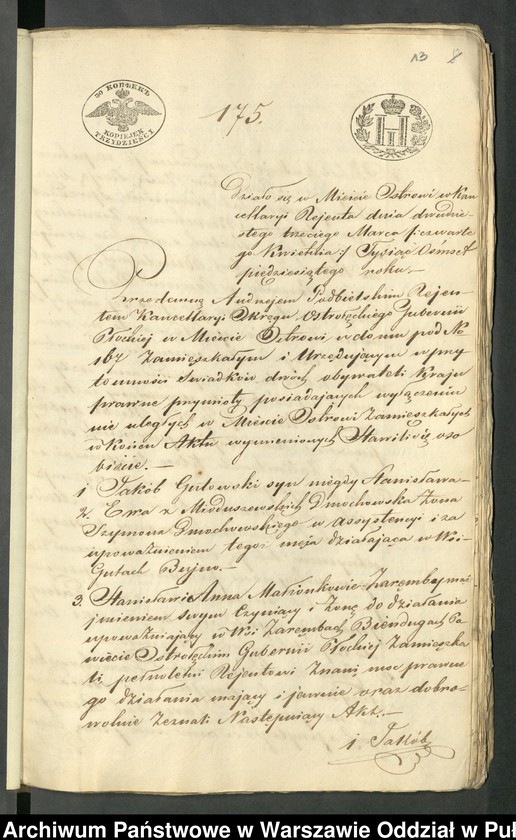 13 8
30 КОПѢЕКЪ
KOPIEJEK TRZYDZIEŚCI
175.
Działo się w Mieście Ostrowi w Kan
cellaryi Rejenta dnia dwudzie-
stego trzeciego Marca /: czwarte
go Kwietnia :/ Tysiąc Ośmset
piędziesiątego roku.—
Przedemną Andrzejem Podbielskim Rejen-
tem Kancellaryi Okręgu Ostrołęckiego Gubernii
Płockiej w Mieście Ostrowi w domu pod No
167 Zamieszkałym i Urzędującym w przy
tomności Świadków dwóch obywateli Kraju
prawne przymioty posiadających wyłączeniu
nie uległych w Mieście Ostrowi Zamieszkałych
w końcu Aktu wymienionych Stawili się oso
biście.—
1 Jakób Gutowski syn niegdy Stanisława—
2. Ewa z Mioduszewskich Dmochowska Żona
Szymona Dmochowskiego w assystencyi i za
upoważnieniem tegoż męża działająca w Wsi
Gutach Bujno.—
3. Stanisław i Anna Małżonkowie Zarembowie
imieniem swym Czyniący i Żonę do działania
upoważniający w Wsi Zarembach Biendugach Po
wiecie Ostrołęckim Gubernii Płockiej Zamieszka
li, pełnoletni Rejentowi Znani moc prawne
go działania mający i jawnie oraz dobro-
wolnie Zeznali Następujący Akt.—
1. Jakób
Archiwum Państwowe w Warszawie Oddział w Puł